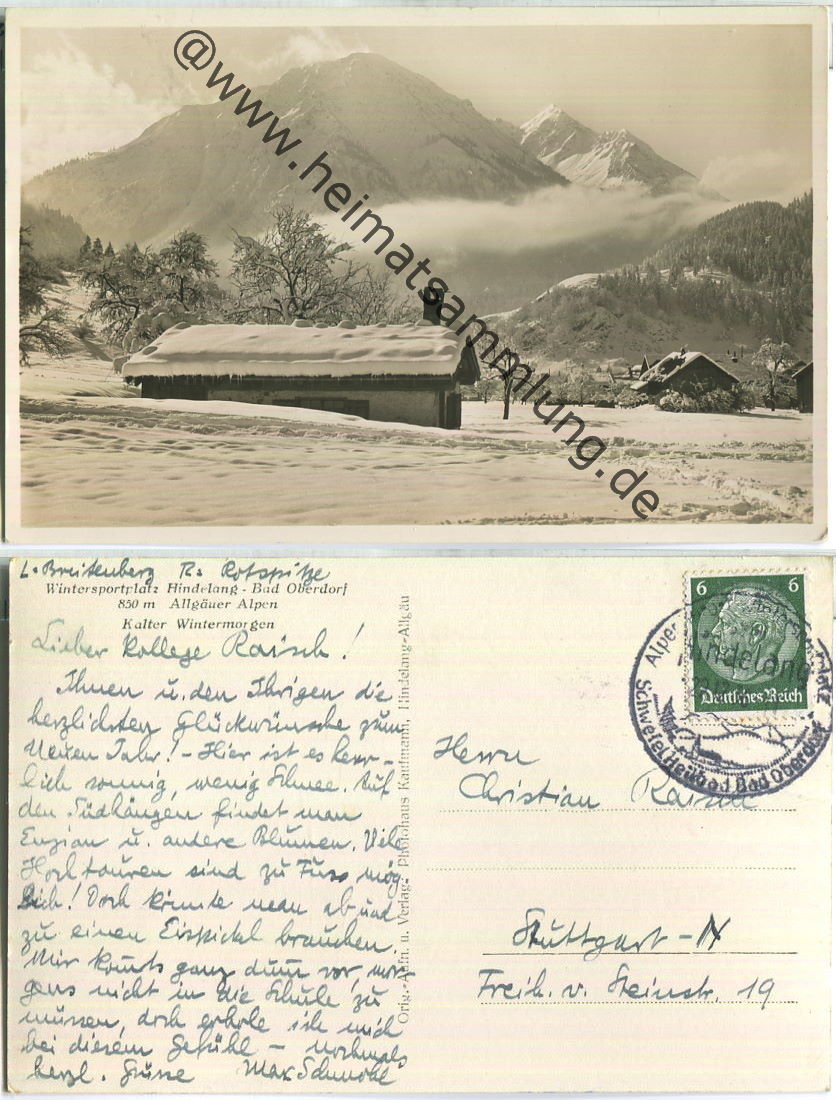 @www.heimatsammlung.de
L. Breitenberg R: Rotspitze
Wintersportplatz Hindelang - Bad Oberdorf
850 m Allgäuer Alpen
Kalter Wintermorgen
Lieber Kollege Raisch!
Ihnen u. den Ihrigen die
herzlichsten Glückwünsche zum
Neuen Jahr! - Hier ist es herr-
lich sonnig, wenig Schnee. Auf
den Südhängen findet man
Enzian u. andere Blumen. Viele
Hochtouren sind zu Fuss mög
lich! Doch könnte man ab und
zu einen Eispickel brauchen.
Mir kommts ganz dumm vor, mor
gens nicht in die Schule zu
müssen, doch erhole ich mich
bei diesem Gefühl - nochmals
herzl. Grüsse Max
Orig.-Aufn. u. Verlag: Photohaus Kaufmann, Hindelang-Allgäu
6 6
Deutsches Reich
Hindelang
Schwefel Heilbad Bad Oberdorf
Herrn
Christian Raisch
Stuttgart-N
Freih. v. Steinstr. 19